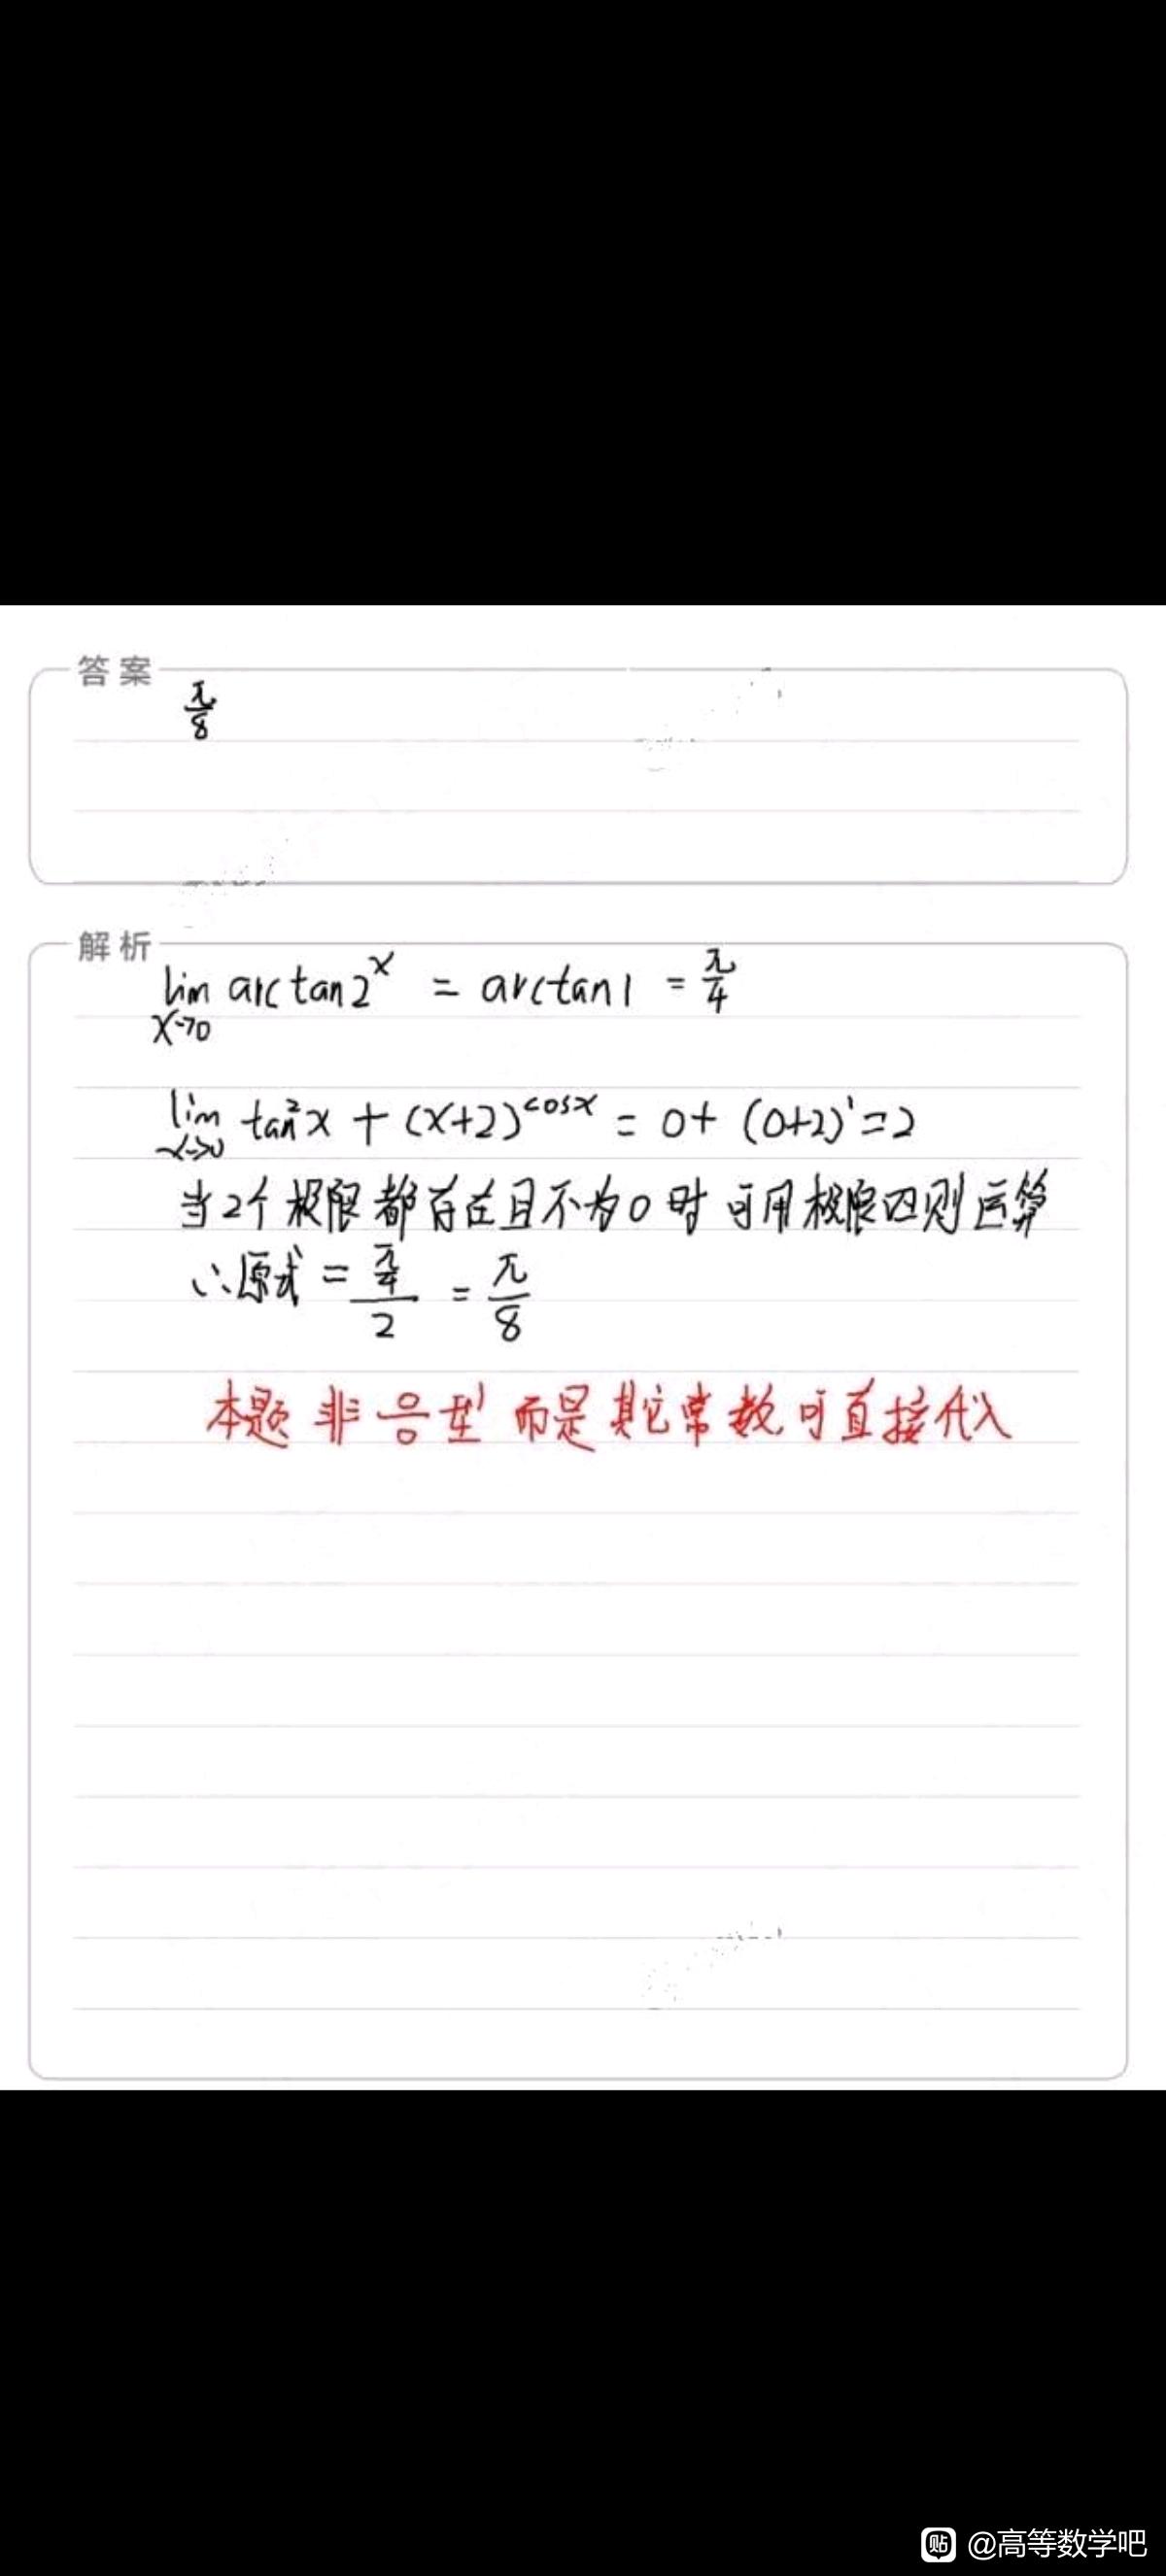 答案
π/8
解析
lim x→0 arctan2^x = arctan1 = π/4
lim x→0 tan²x + (x+2)^cosx = 0+ (0+2)^1=2
当2个极限都存在且不为0时可用极限四则运算
∴原式 = (π/4)/2 = π/8
本题非0/0型而是其它常数可直接代入
贴 @高等数学吧